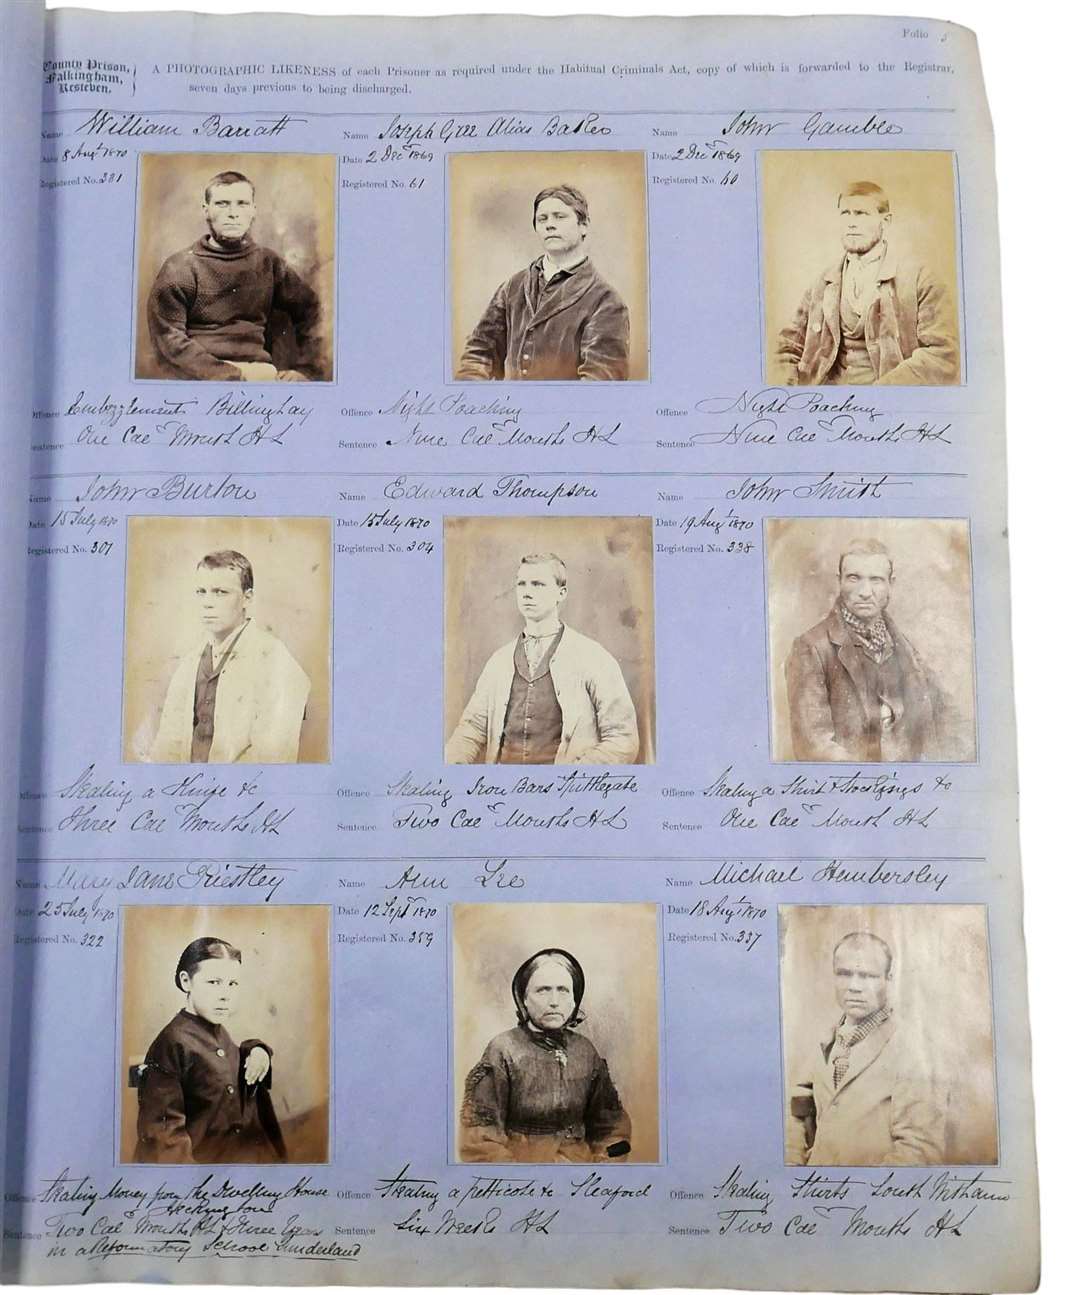 Folio 5
County Prison,
Falkingham,
Kesteven.
A PHOTOGRAPHIC LIKENESS of each Prisoner as required under the Habitual Criminals Act, copy of which is forwarded to the Registrar,
seven days previous to being discharged.
Name William Barratt
Date 8 Augt 1870
Registered No. 381
Offence Embezzlement Billinghay
Sentence One Car Month HL
Name Joseph Gee Alias Baker
Date 2 Decr 1869
Registered No. 61
Offence Night Poaching
Sentence Nine Car Months HL
Name John Gamble
Date 2 Decr 1869
Registered No. 60
Offence Night Poaching
Sentence Nine Car Months HL
Name John Burton
Date 15 July 1870
Registered No. 307
Offence Stealing a Hinge &c
Sentence Three Car Months HL
Name Edward Thompson
Date 15 July 1870
Registered No. 304
Offence Stealing Iron Bars Spittlegate
Sentence Two Car Months HL
Name John Smith
Date 19 Augt 1870
Registered No. 338
Offence Stealing a Shirt & Stockings &c
Sentence One Car Month HL
Name Mary Jane Priestley
Date 25 July 1870
Registered No. 322
Offence Stealing Money from the Dwelling House
Heckington
Sentence Two Car Months HL & Three Years
in a Reformatory School Sunderland
Name Ann Lee
Date 12 Sept 1870
Registered No. 359
Offence Stealing a petticote &c Sleaford
Sentence Six Weeks HL
Name Michael Hembersley
Date 18 Augt 1870
Registered No. 337
Offence Stealing Shirts South Witham
Sentence Two Car Months HL